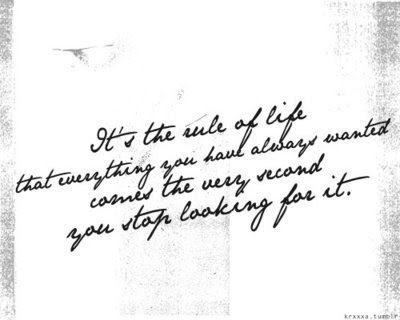 It's the rule of life
that everything you have always wanted
comes the very second
you stop looking for it.
krxxxa.tumblr